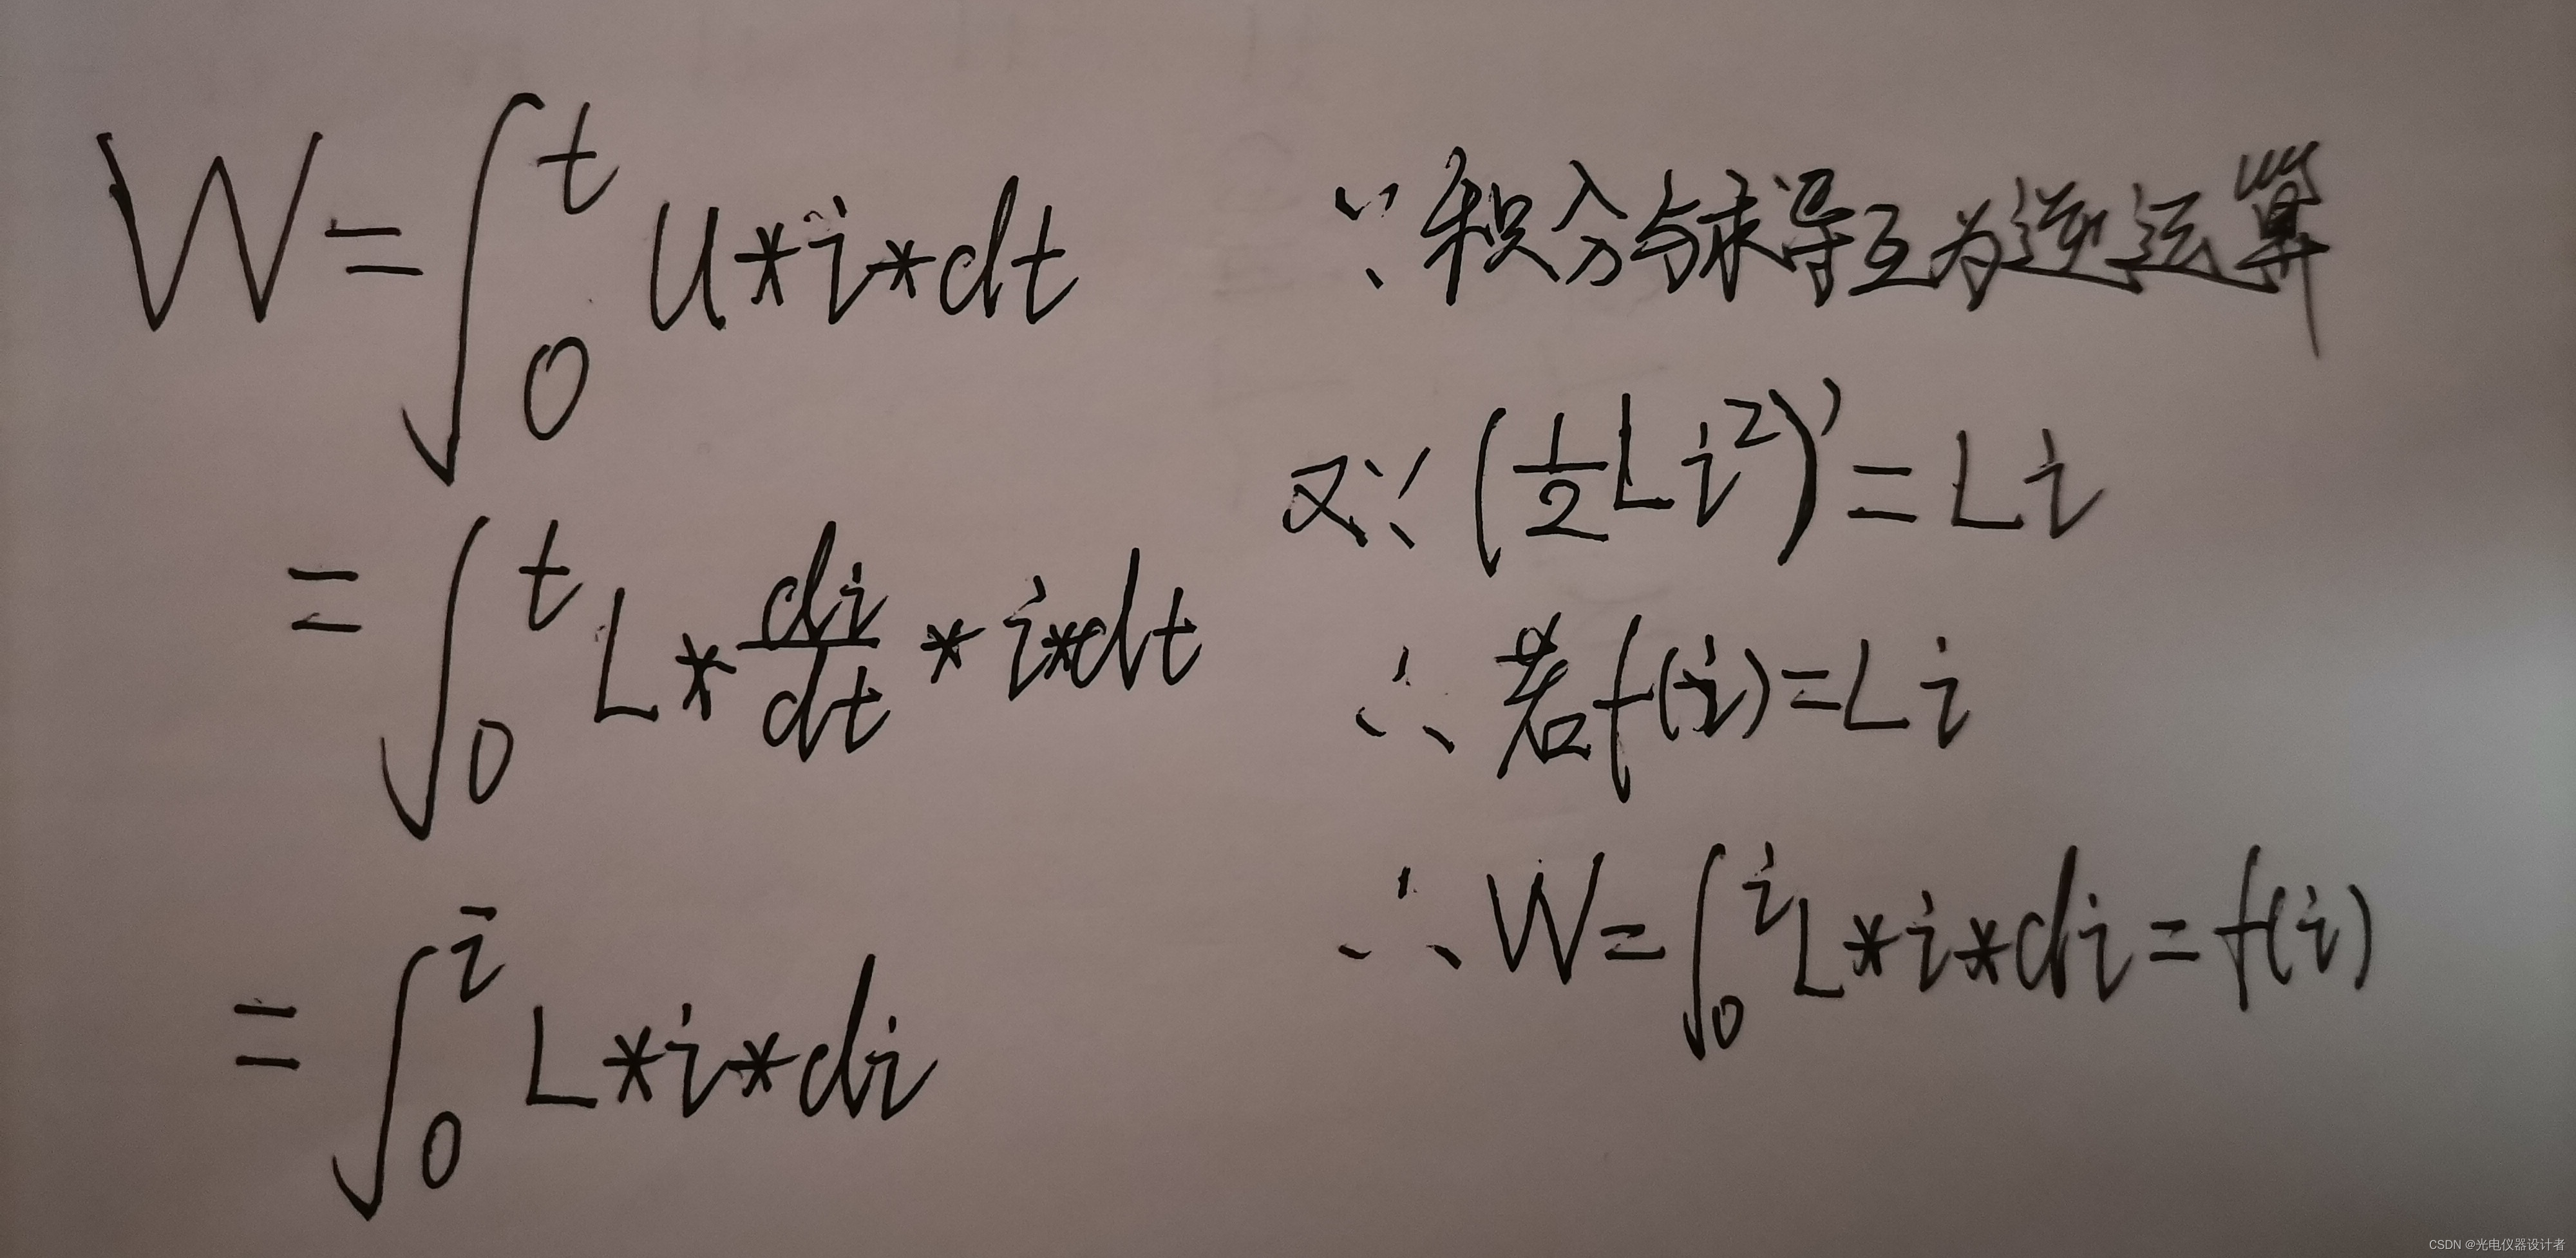 W=∫₀ᵗ u*i*dt
=∫₀ᵗ L*di/dt*i*dt
=∫₀ⁱ L*i*di
∵积分与求导互为逆运算
又∵(1/2Li²)'=Li
∴若f(i)=Li
∴W=∫₀ⁱL*i*di=f(i)
CSDN @光电仪器设计者